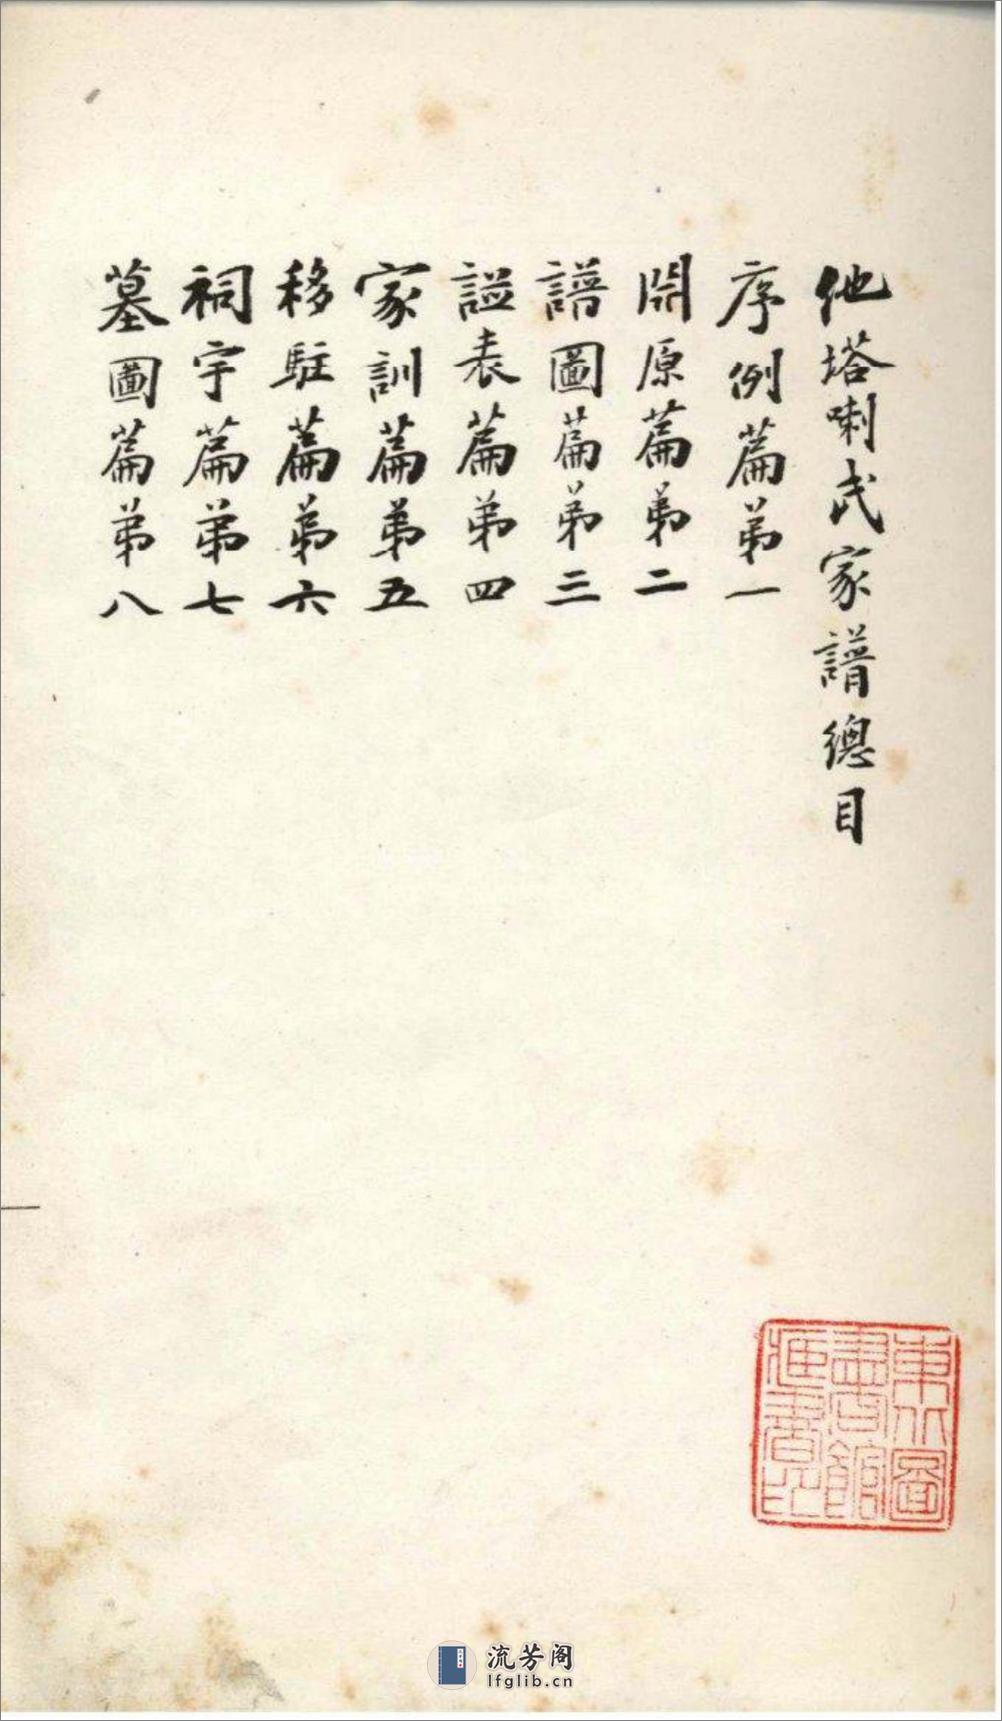 他塔喇氏家譜總目
序例篇弟一
開原篇弟二
譜圖篇弟三
諡表篇弟四
家訓篇弟五
移駐篇弟六
祠宇篇弟七
墓圖篇弟八
東北圖
書館
藏書印
流芳阁
lfglib.cn